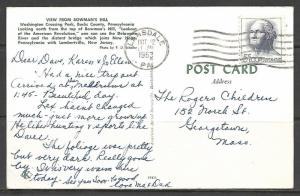 VIEW FROM BOWMAN'S HILL
Washington Crossing Park, Bucks County, Pennsylvania
Looking north from the top of Bowman's Hill, "Lookout
of the American Revolution," one can see the Delaware
River and the distant bridge which joins New Hope,
Pennsylvania with Lambertville, New Jersey.
Photo by F. D.
DALE
1963
PM
POST CARD
Address
Dear Dave, Karen & Ellen:
Had a nice trip out
Arriving at
1:45 - Beautiful day.
Tex hasn't changed
much - just more grown
He likes hunting & sports like
Dave.
The foliage was pretty
but very dark. Really gone
by. Overcoats in order
to-day
love M & Dad
The Rogers Children
152 North St.
Georgetown,
Mass.